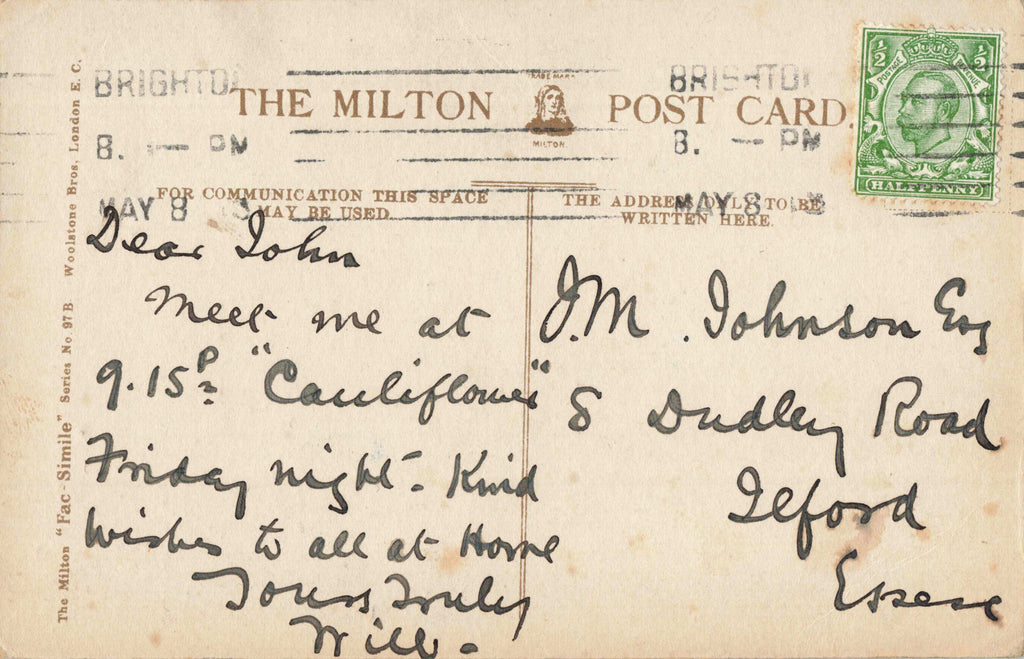 BRIGHTON
8. — PM
MAY 8 13
BRIGHTON
8. — PM
MAY 8
THE MILTON POST CARD.
TRADE MARK
MILTON.
½ ½
POSTAGE REVENUE
HALFPENNY
FOR COMMUNICATION THIS SPACE
MAY BE USED.
THE ADDRESS ONLY TO BE
WRITTEN HERE.
Dear John
Meet me at
9.15 P "Cauliflower"
Friday night - Kind
Wishes to all at Home
Yours Truly
Will.
J.M. Johnson Esq
8 Dudley Road
Ilford
Essex
The Milton "Fac-Simile" Series No. 97 B Woolstone Bros., London E.C.